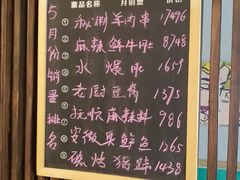 5月份销量排名
菜品名称 月销量 价格
① 秘制羊肉串 17496
② 麻辣鲜牛肉 8748
③ 水爆肚 1659
④ 老厨豆腐 1375
⑤ 抗抗麻辣拌 986
⑥ 安徽臭鲑鱼 1265
⑦ 碳烤猪蹄 1438